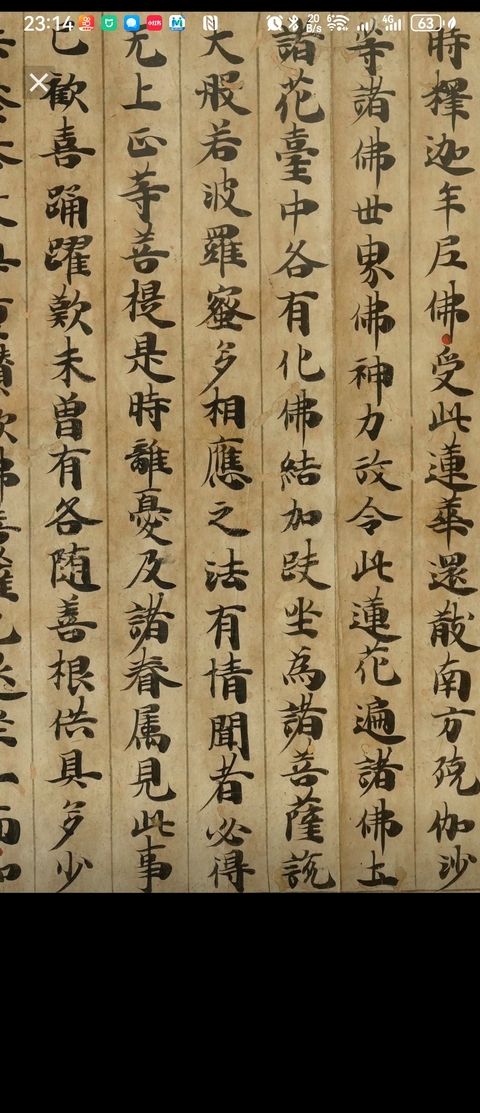 23:14 20 B/s 4G 63
時釋迦牟尼佛受此蓮華還散南方殑伽沙
等諸佛世界佛神力故令此蓮花遍諸佛土
諸花臺中各有化佛結加趺坐為諸菩薩說
大般若波羅蜜多相應之法有情聞者必得
无上正等菩提是時離憂及諸眷属見此事
已歡喜踊躍歎未曾有各随善根供具多少